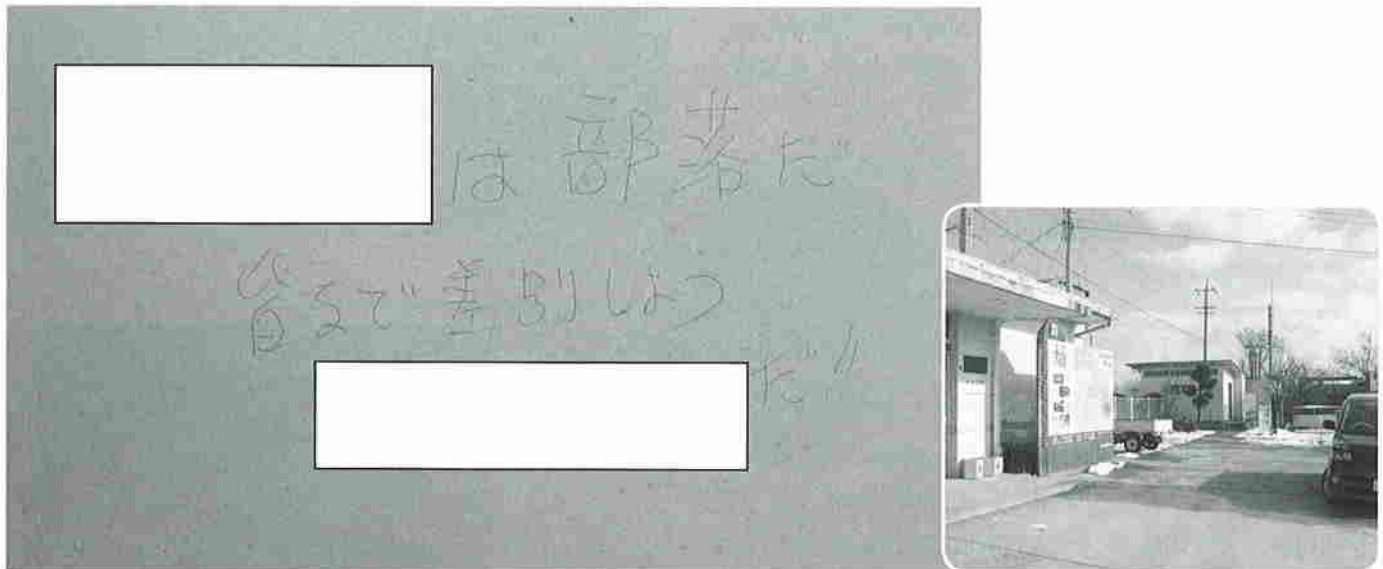 は部落だ
皆るで差別しよう
だ〃